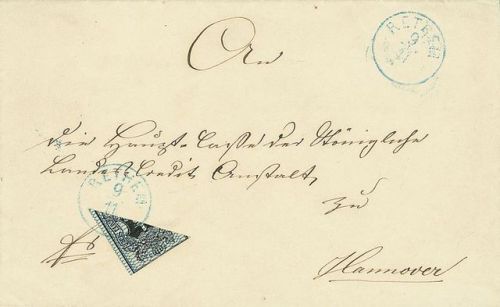 RETHEM
9
An
die Haupt-Casse der Königliche
Landes Credit Anstalt,
RETHEM
9
11
zu
Hannover